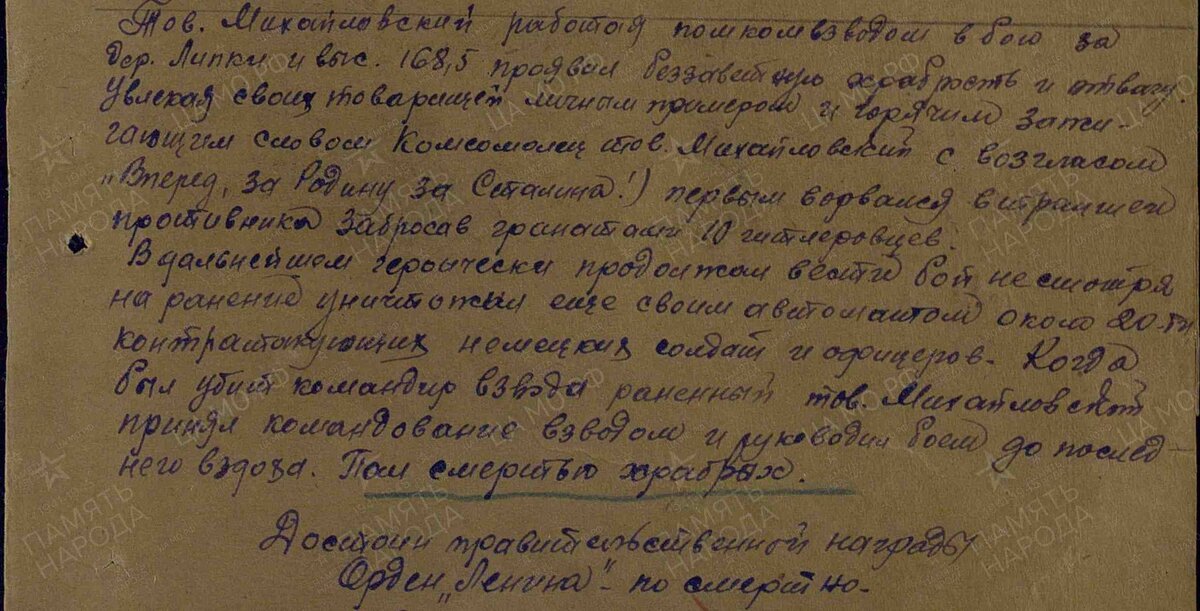 Тов. Михайловский работая помкомвзводом в бою за
дер. Липки и выс. 168,5 проявил беззаветную храбрость и отвагу.
Увлекая своих товарищей личным примером и горячим зажи-
гающим словом Комсомолец тов. Михайловский с возгласом
"Вперед, за Родину за Сталина!) первым ворвался в траншеи
противника забросав гранатами 10 гитлеровцев.
В дальнейшем героически продолжал вести бой, несмотря
на ранение уничтожил еще своим автоматом около 20-ти
контратакующих немецких солдат и офицеров. Когда
был убит командир взвода раненный тов. Михайловский
принял командование взводом и руководил боем до послед-
него вздоха. Пал смертью храбрых.
Достоин правительственной награды
Орден „Ленина" - посмертно.
ПАМЯТЬ НАРОДА
ЦА МО РФ